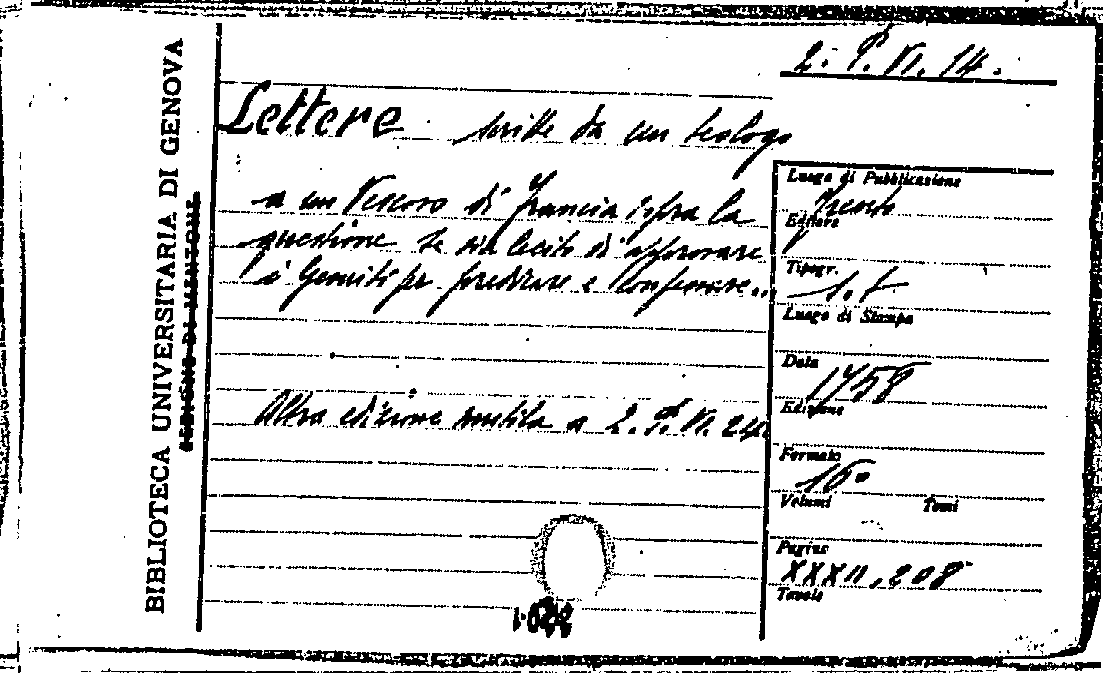 2. P. VI. 14.
Lettere scritte da un teologo
a un Vescovo di Francia sopra la
questione se sia lecito di approvare
i Gesuiti per predicare e confessare...
Altra edizione mutila a 2. P. VI. 24.
BIBLIOTECA UNIVERSITARIA DI GENOVA
Luogo di Pubblicazione
Trento
Editore
Tipogr.
s. t.
Luogo di Stampa
Data
1758
Edizione
Formato
16°
Volumi Tomi
Pagine
XXXII, 208
Tavole